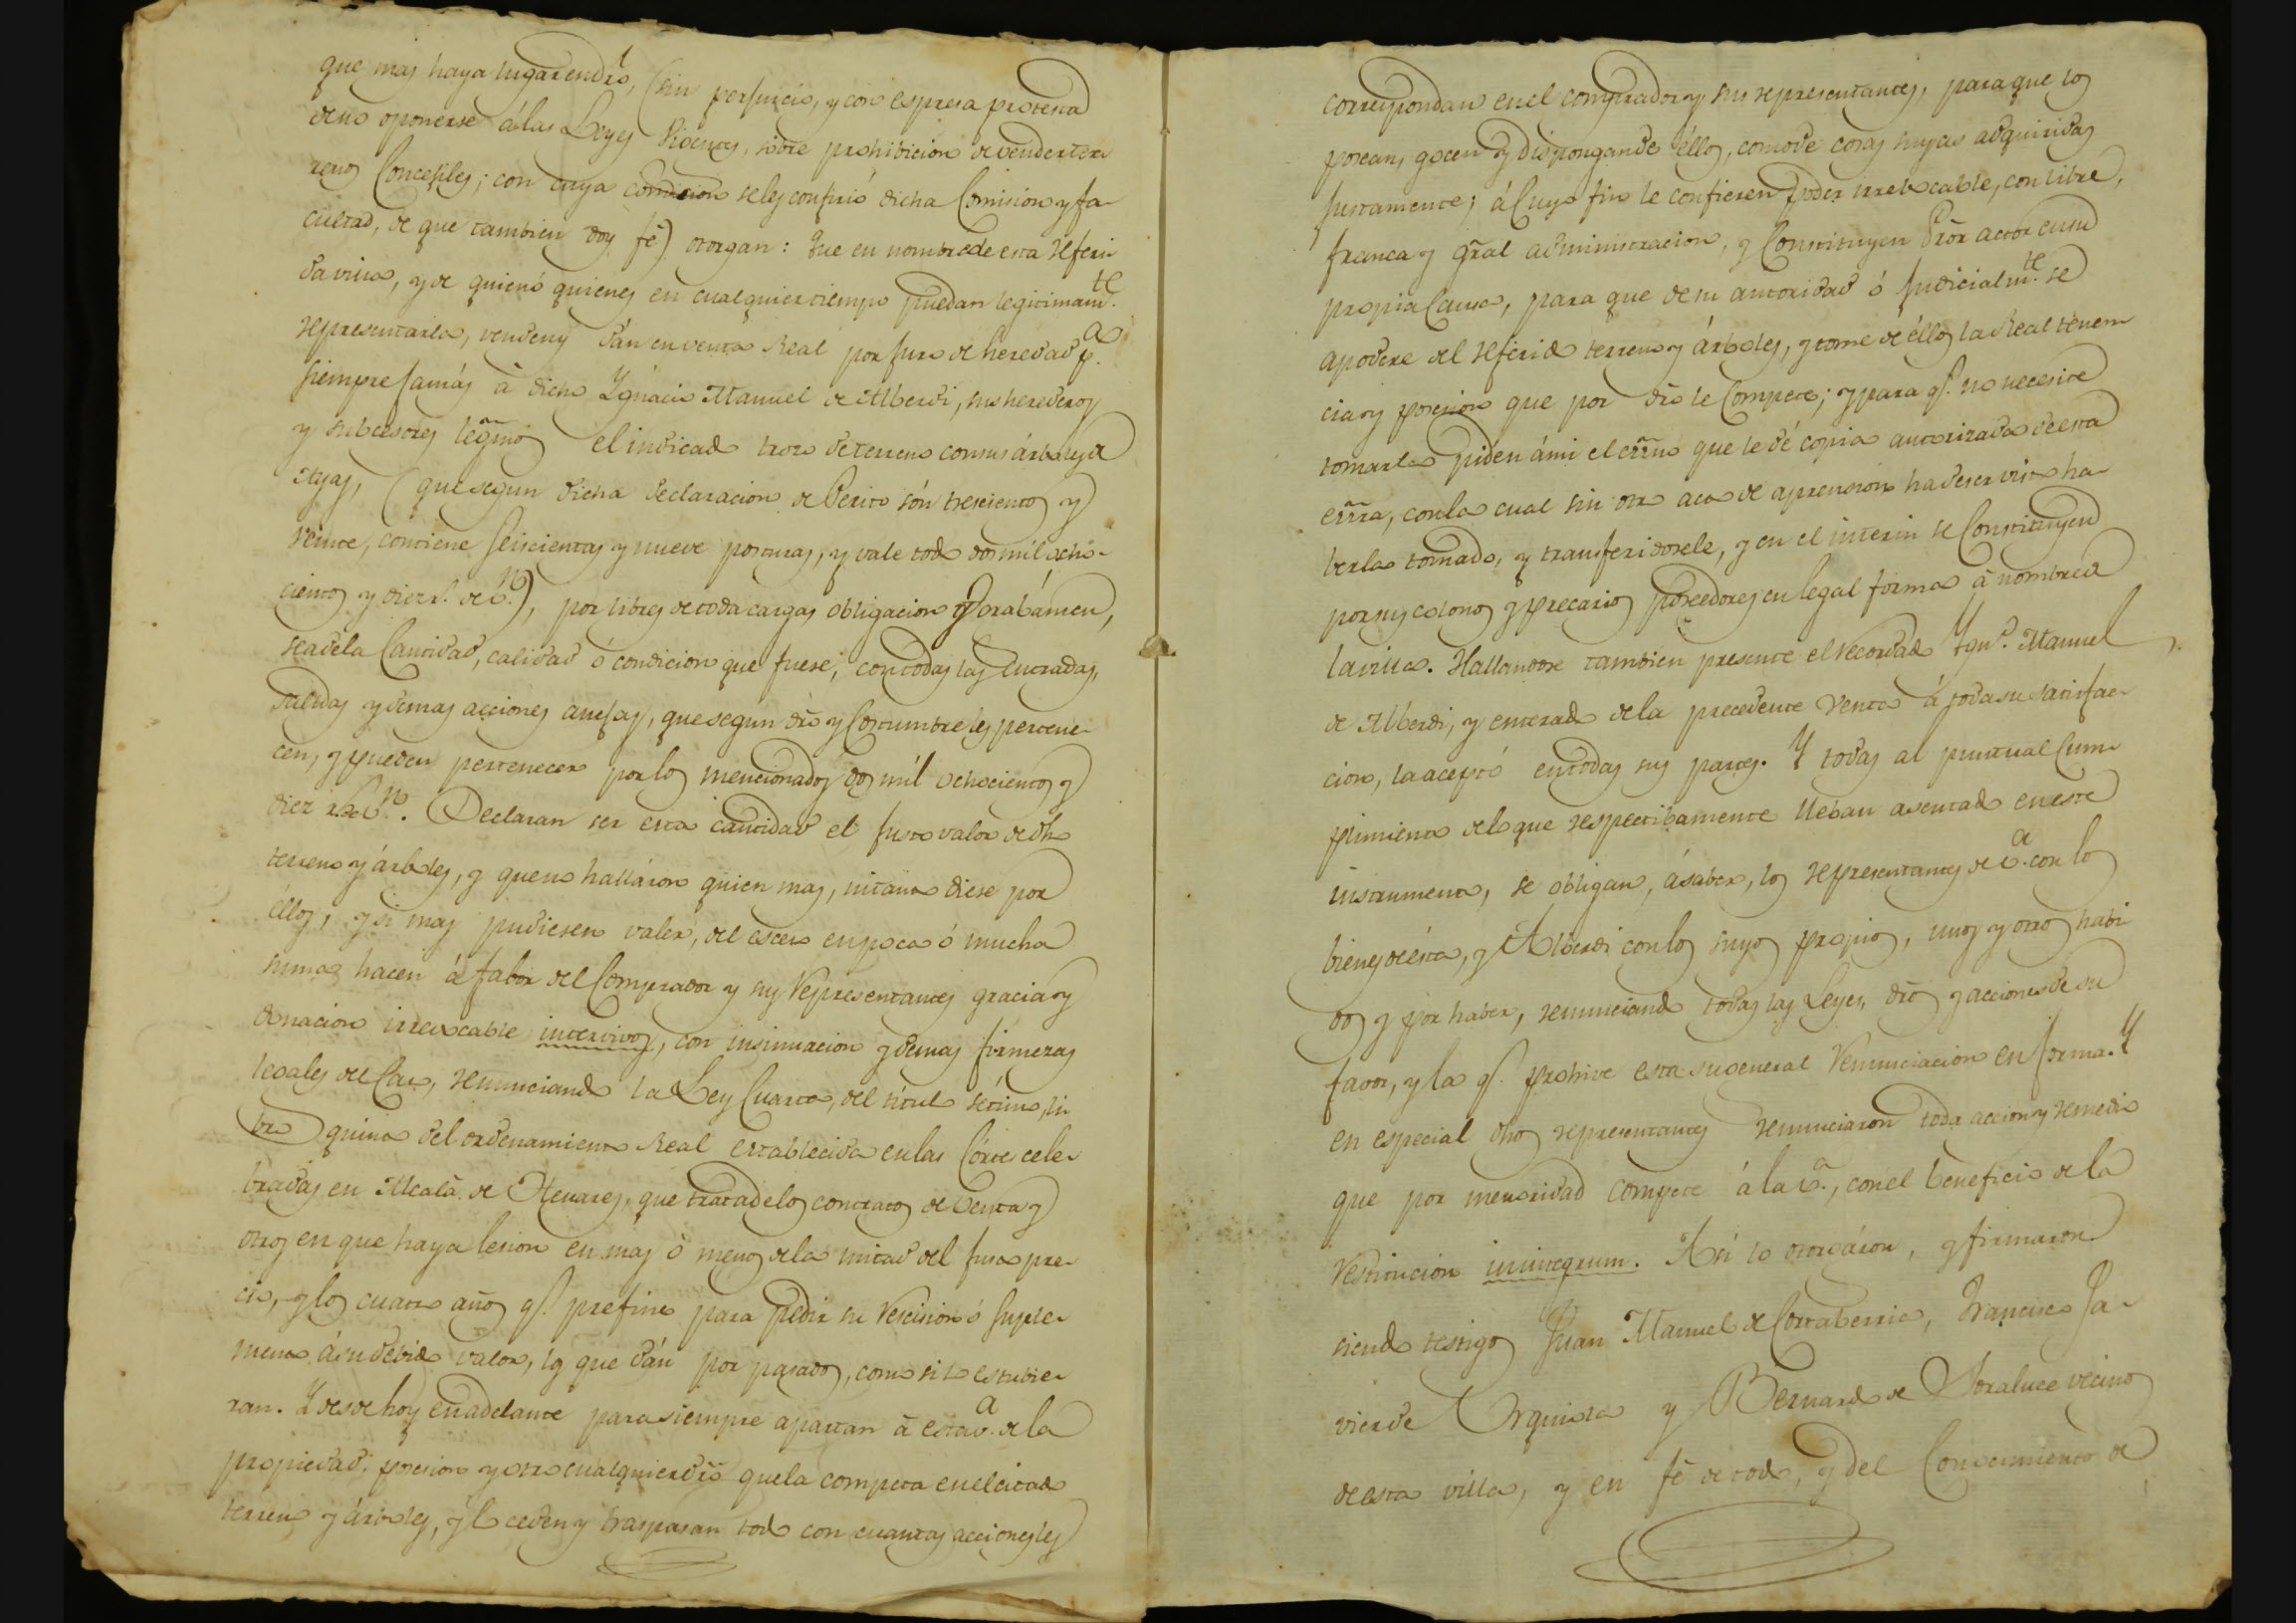 que mas haya lugar en dro, (sin perjuicio, y con espresa protesta
de no oponerse á las Leyes Vigentes, sobre prohibicion de vender ter-
renos Concejiles; con cuya condicion se les confirió dicha Comision y fa-
cultad, de que tambien doy fé) otorgan: Que en nombre de esta referi-
da villa, y de quien ó quienes en cualquier tiempo puedan legitimamte.
representarla, venden y dán en venta Real por juro de heredad pa.
siempre jamás á dicho Ygnacio Manuel de Alberdi, sus herederos
y subcesores legmos el indicado trozo de terreno con sus árboles de
Ayas, (que segun dicha declaracion de Perito són trescientos y
veinte, contiene seiscientas y nueve posturas, y vale todo dos mil ocho-
cientos y diez r. de Vn.), por libres de toda cargas obligacion y Grabámen,
sea de la Cantidad, calidad ó condicion que fuese; con todas las Entradas,
salidas y demas acciones anejas, que segun dro y Costumbre les pertene-
cen, y pueden pertenecer por los mencionados dos mil ochocientos y
diez r. de Vn. Declaran ser esta cantidad el justo valor de dho
terreno y árboles, y que no halláron quien mas, ni tanto diese por
éllos, y si mas pudiesen valer, del esceso en poca ó mucha
suma hacen á fabor del Comprador y sus Representantes gracia y
donacion irrevocable intervivos, con insinuacion y demas firmezas
legales del Caso, renunciando la Ley Cuarta, del título sétimo, li-
bro quinto del ordenamiento Real establecida en las Córtes cele-
bradas en Alcalá de Henares, que trata de los contratos de Venta y
otros en que haya lesion en mas ó menos de la mitad del justo pre-
cio, y los cuatro años q. prefine para pedir su Rescision ó suple-
mento á su debido valor, los que dán por pasados, como si lo estubie-
ran. Y desde hoy en adelante para siempre apartan á esta va. de la
propiedad, posesion y otro cualquier dro que la competa en el citado
terreno y árboles, y lo ceden y traspasan todo con cuantas acciones les
correspondan en el comprador y sus representantes, para que los
posean, gocen y dispongan de éllos, como de cosas suyas adquiridas
justamente; á Cuyo fin le confieren poder irrebocable, con libre,
franca y gral administracion, y Constituyen Pror actor en su
propia Causa, para que de su autoridad ó Judicialmte. se
apodere del referido terreno y árboles, y tome de éllos la Real tenen-
cia y posesion que por dro le Compete; y para q. no necesite
tomarla piden á mi el esno que le dé copia autorizada de esta
esra, con la cual sin otro acto de aprension ha de ser visto ha-
berla tomado, y transferidosele, y en el interin se Constituyen
por sus colonos y precarios poseedores en legal forma á nombre de
la villa. Hallandose tambien presente el recordado Ygno. Manuel
de Alberdi, y enterado de la precedente Venta á toda su satisfac-
cion, la aceptó en todas sus partes. Y todos al puntual Cum-
plimiento de lo que respectibamente lleban asentado en este
instrumento, se obligan, á saber, los representantes de va. con los
bienes de ésta, y Alberdi con los suyos propios, unos y otros habi-
dos y por haber, renunciando todas las Leyes, dros y acciones de su
favor, y la q. prohive esta su general Renunciacion en forma. Y
en especial dhos representantes renunciaron toda accion y remedio
que por menoridad compete á la va., con el beneficio de la
Restitucion inintegrum. Asi lo otorgáron, y firmaron
siendo testigos Juan Manuel de Cortaberria, Francisco Ja-
vier de Urquiola y Bernardo de Soraluce vecinos
de esta villa, y en fé de todo, y del Conocimiento de